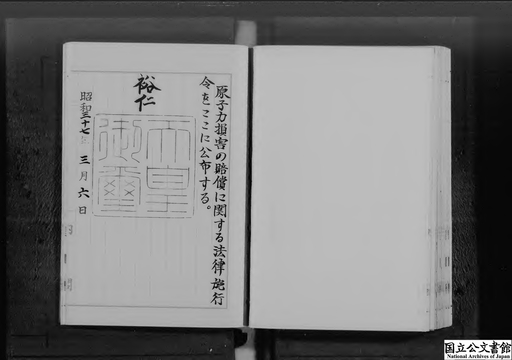 原子力損害の賠償に関する法律施行
令をここに公布する。
裕仁
天皇
御璽
昭和三十七年三月六日
国立公文書館
National Archives of Japan